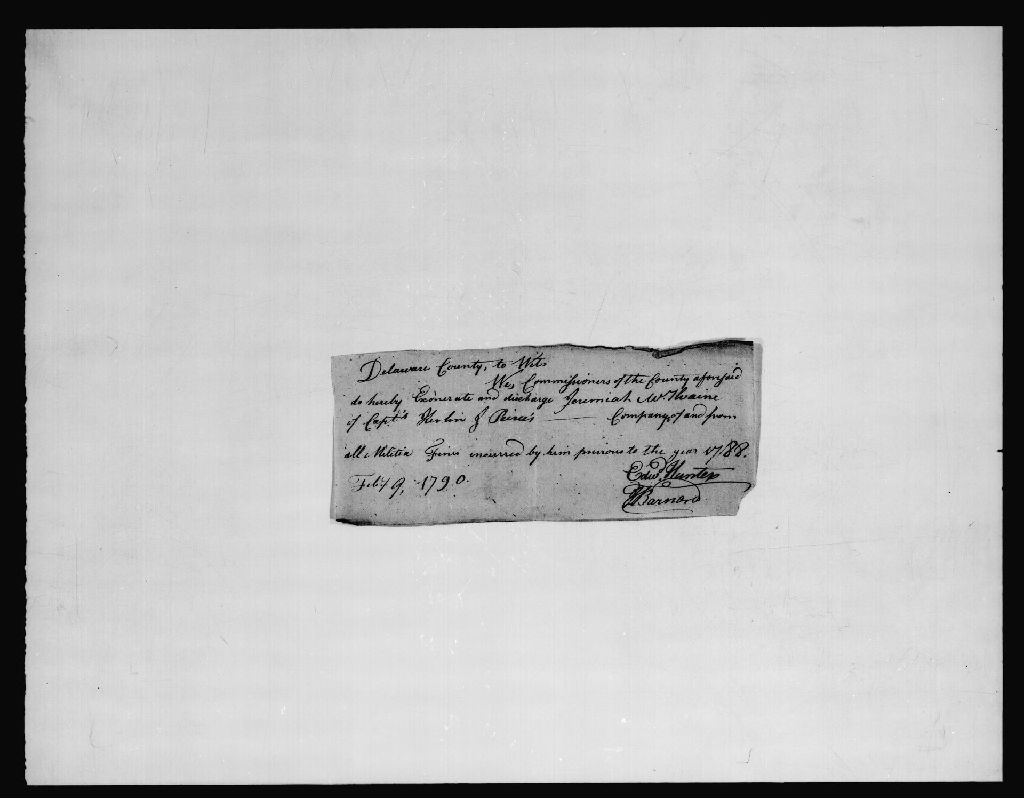 Delaware County, to Wit.
We, Commissioners of the County aforesaid
do hereby Exonerate and discharge Jeremiah McIlvaine
of Capt.s & Company, of and from
all Militia Fines incurred by him previous to the year 1788.
Feb.y 9, 1790.
Edw.d Hunter
Barnard